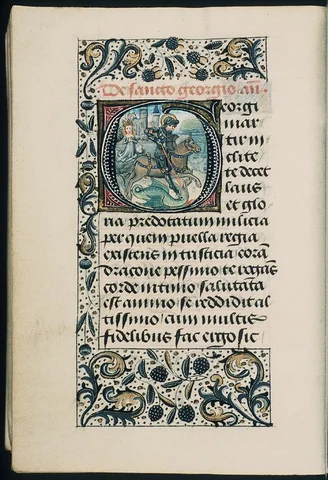 De sancto georgio an.
Georgi
mar
tir in
clite
te decet
laus
et glo
ria predotatum milicia
per quem puella regia
existens in tristicia corā
dracone pessimo te rogam̄s
corde intimo saluata
est animo se reddidit al
tissimo cum multis
fidelibus fac ergo sic